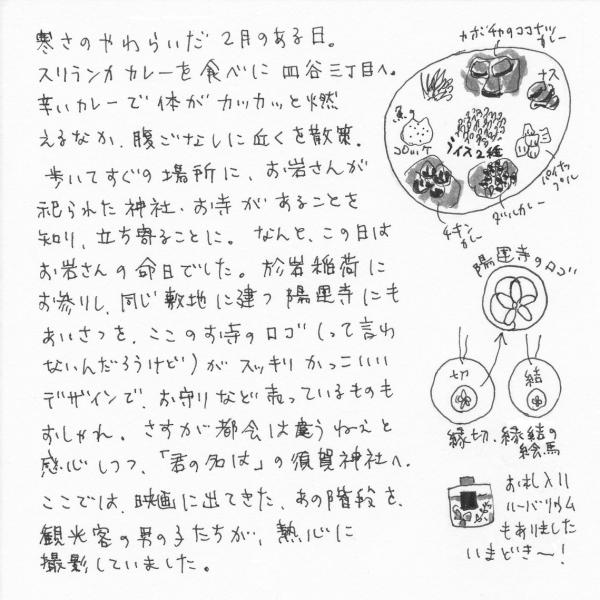 寒さのやわらいだ2月のある日。
スリランカカレーを食べに四谷三丁目へ。
辛いカレーで体がカッカッと燃
えるなか、腹ごなしに近くを散策。
歩いてすぐの場所に、お岩さんが
祀られた神社、お寺があることを
知り、立ち寄ることに。なんと、この日は
お岩さんの命日でした。於岩稲荷に
お参りし、同じ敷地に建つ陽運寺にも
あいさつを、ここのお寺のロゴ（って言わ
ないんだろうけど）がスッキリかっこいい
デザインで、お守りなど売っているものも
おしゃれ。さすが都会は違うねえと
感心しつつ、「君の名は」の須賀神社へ。
ここでは、映画に出てきた、あの階段を、
観光客の男の子たちが、熱心に
撮影していました。
カボチャのココナッツ
カレー
ナス
魚の
コロッケ
ライス2種
パイナップル
チキン
カレー
ダルカレー
陽運寺のロゴ
切
結
縁切、縁結の
絵馬
お花入り
ハーバリウム
もありました
いまどき〜！